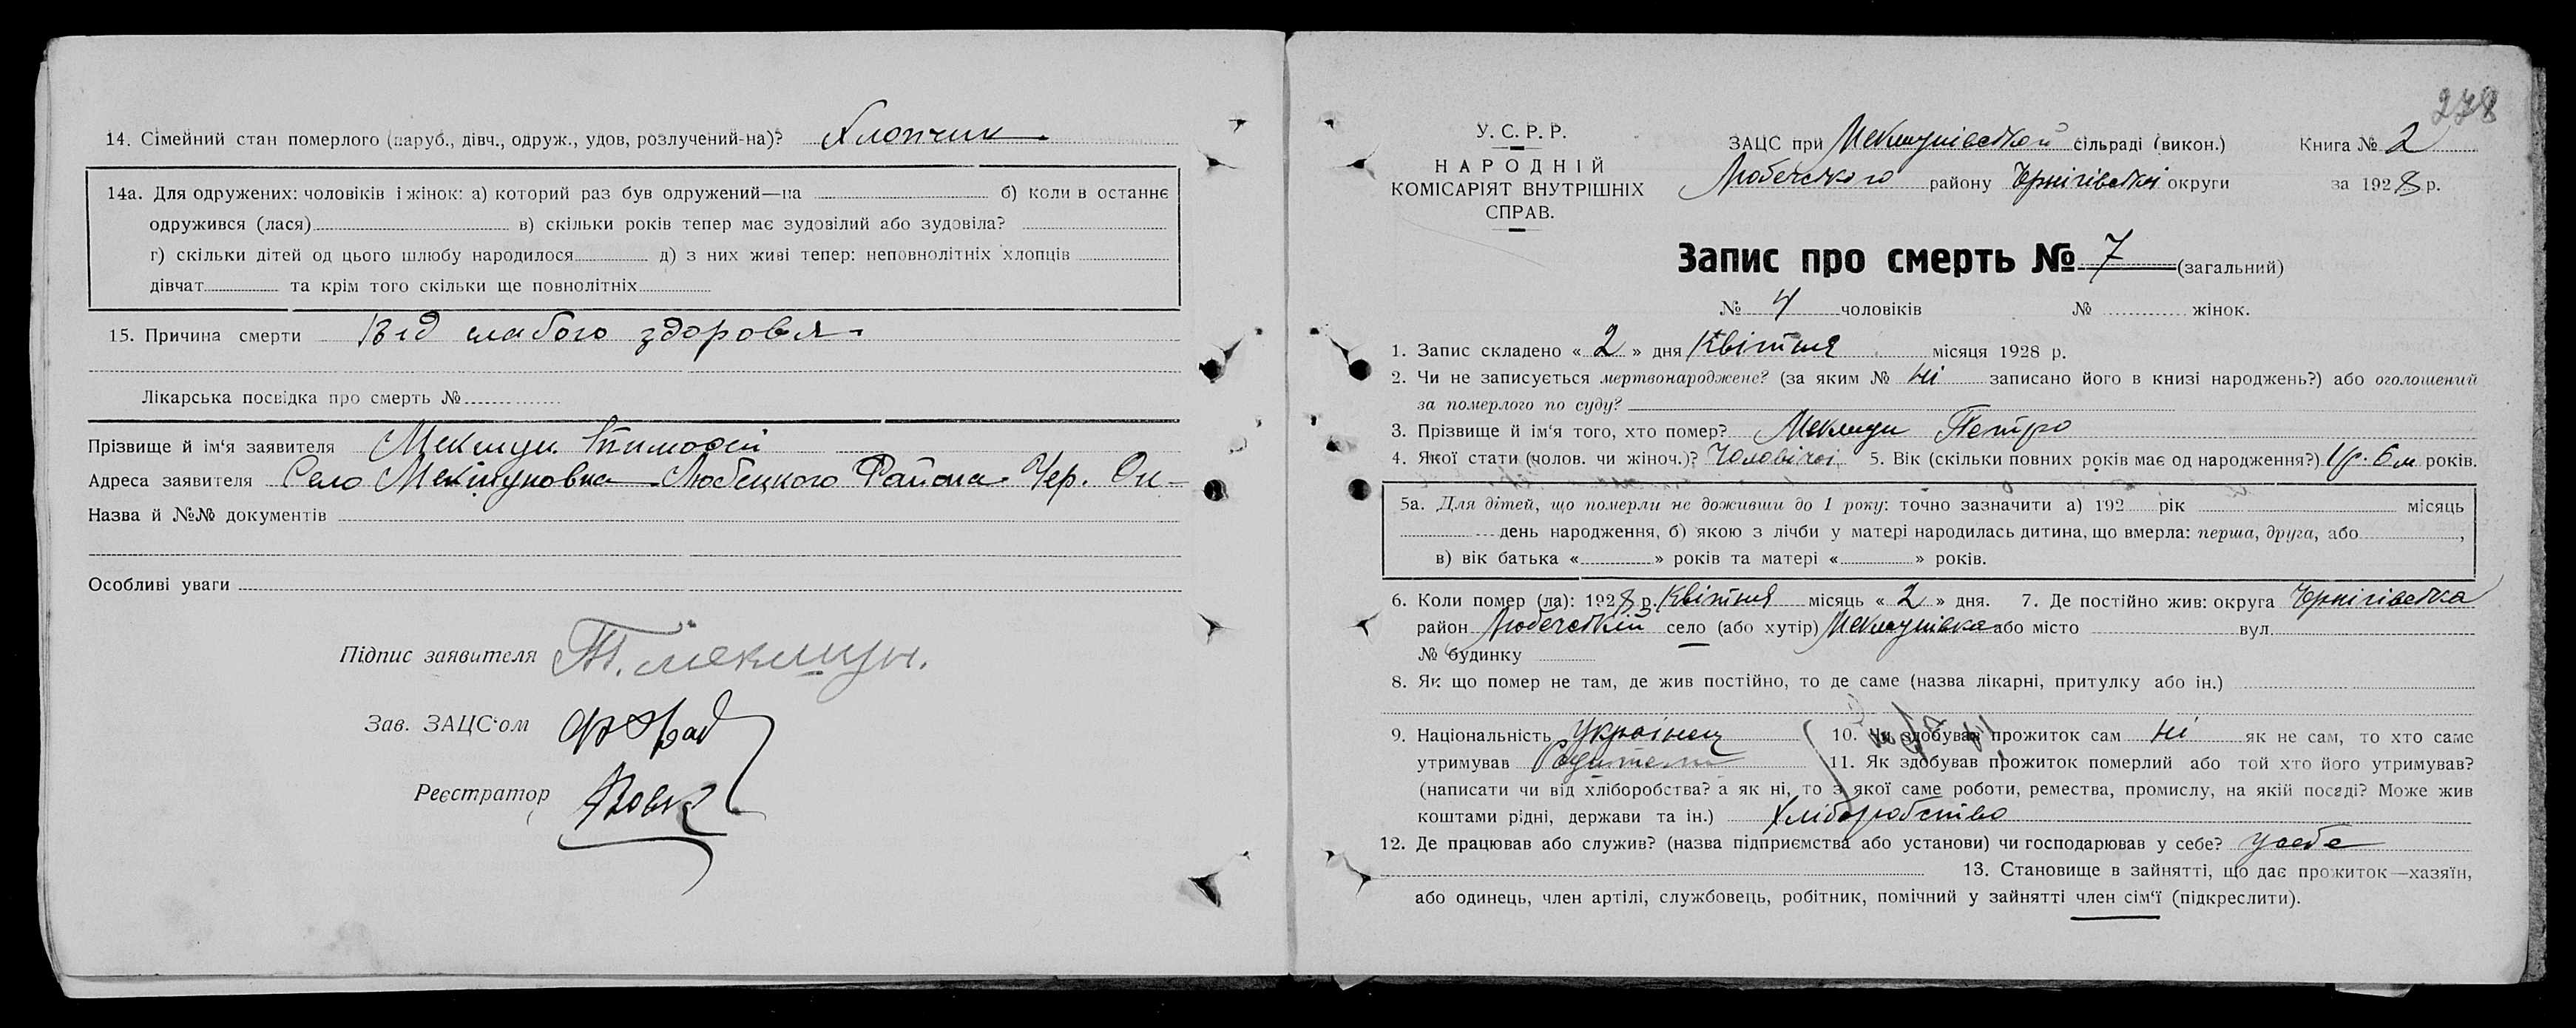 14. Сімейний стан померлого (паруб., дівч., одруж., удов, розлучений-на)? Хлопчик
14а. Для одружених: чоловіків і жінок: а) который раз був одружений—на б) коли в останнє
одружився (лася) в) скільки років тепер має зудовілий або зудовіла?
г) скільки дітей од цього шлюбу народилося д) з них живі тепер: неповнолітніх хлопців
дівчат та крім того скільки ще повнолітніх
15. Причина смерти Від слабого здоровля
Лікарська посвідка про смерть №
Прізвище й ім'я заявителя Тимофій
Адреса заявителя Село Любецкого Района Чер. Ок-
Назва й №№ документів
Особливі уваги
Підпис заявителя Т.
Зав. ЗАЦС'ом
Реєстратор Вовк
278
У. С. Р. Р.
НАРОДНІЙ
КОМІСАРІЯТ ВНУТРІШНІХ
СПРАВ.
ЗАЦС при сільраді (викон.) Книга № 2
Любечського району Чернігівської округи за 1928 р.
Запис про смерть № 7 (загальний)
№ 4 чоловіків № жінок.
1. Запис складено « 2 » дня Квітня місяця 1928 р.
2. Чи не записується мертвонароджене? (за яким № ні записано його в книзі народжень?) або оголошений
за померлого по суду?
3. Прізвище й ім'я того, хто помер? Петро
4. Якої стати (чолов. чи жіноч.)? Чоловічої 5. Вік (скільки повних років має од народження?) 1 р. 6 м років.
5а. Для дітей, що померли не доживши до 1 року: точно зазначити а) 192 рік місяць
день народження, б) якою з лічби у матері народилась дитина, що вмерла: перша, друга, або ,
в) вік батька « » років та матері « » років.
6. Коли помер (ла): 1928 р. Квітня місяць « 2 » дня. 7. Де постійно жив: округа Чернігівська
район Любечський село (або хутір) або місто вул.
№ будинку
8. Як що помер не там, де жив постійно, то де саме (назва лікарні, притулку або ін.)
9. Національність Українец 10. Чи здобував прожиток сам ні як не сам, то хто саме
утримував Родители 11. Як здобував прожиток померлий або той хто його утримував?
(написати чи від хліборобства? а як ні, то з якої саме роботи, ремества, промислу, на якій посаді? Може жив
коштами рідні, держави та ін.) Хліборобство
12. Де працював або служив? (назва підприємства або установи) чи господарював у себе? у себе
13. Становище в зайнятті, що дає прожиток—хазяїн,
або одинець, член артілі, службовець, робітник, помічний у зайнятті член сім'ї (підкреслити).